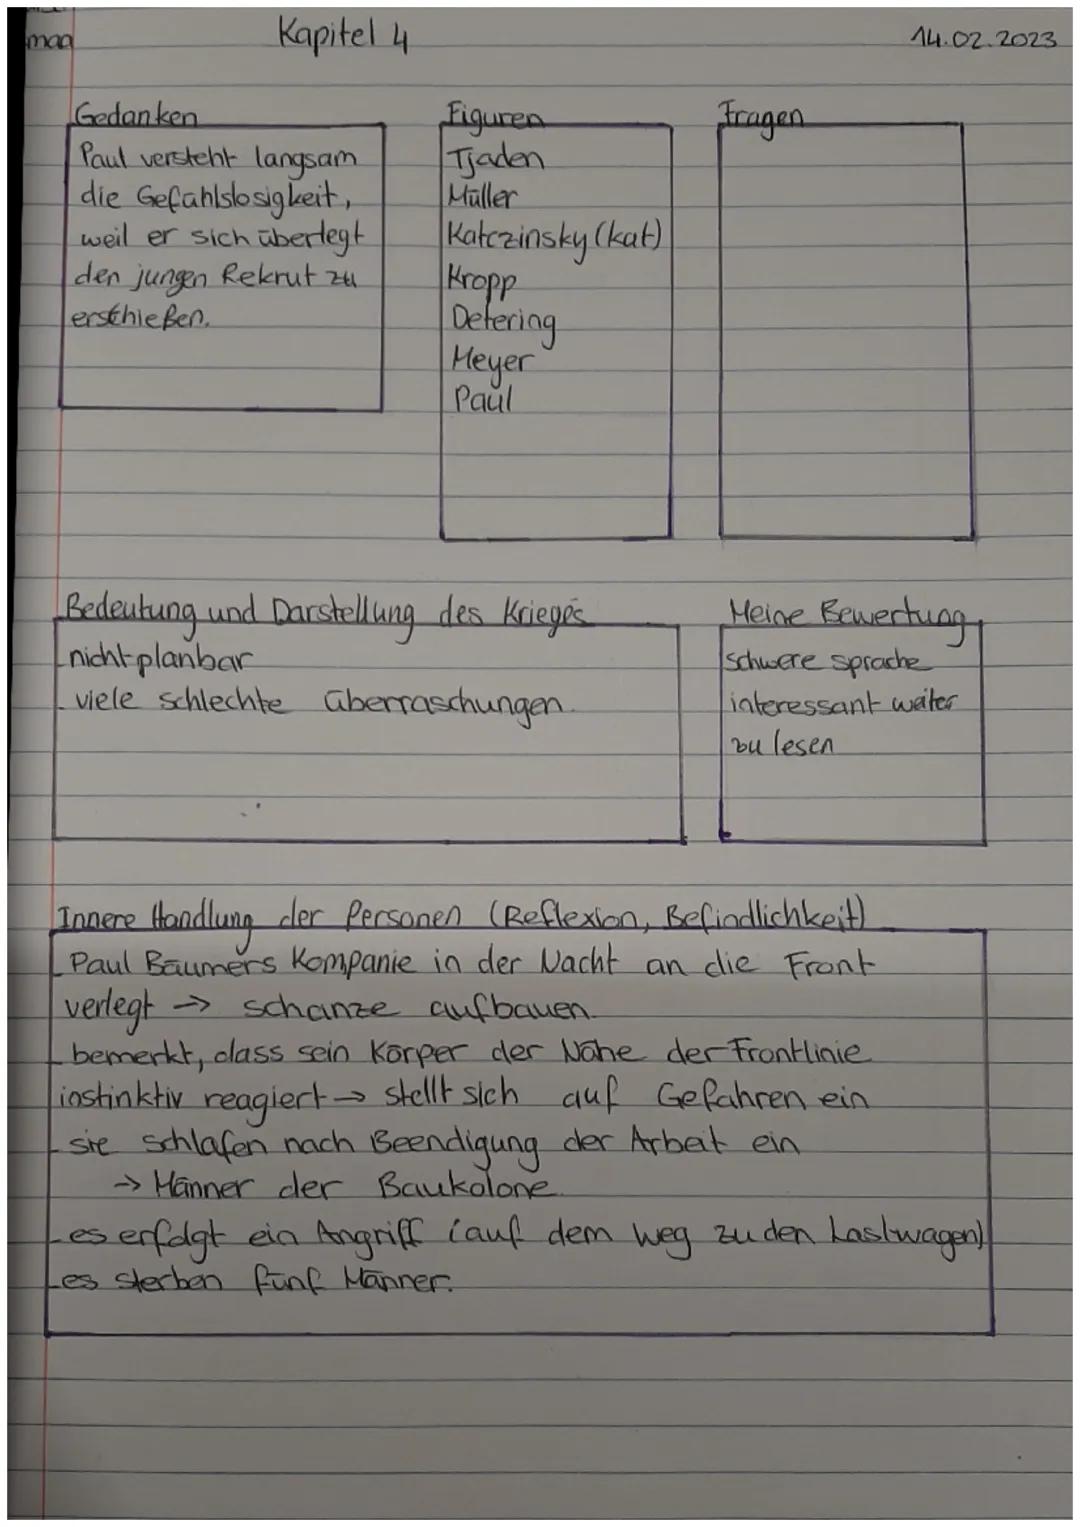 Kapitel 4
14.02.2023
Gedanken
Paul versteht langsam
die Gefühlslosigkeit,
weil er sich überlegt
den jungen Rekrut zu
erschießen.
Figuren
Tjaden
Müller
Katczinsky (kat)
Kropp
Detering
Meyer
Paul
Fragen
Bedeutung und Darstellung des Krieges
- nicht planbar
- viele schlechte überraschungen.
Meine Bewertung
schwere sprache
interessant weiter
zu lesen
Innere Handlung der Personen (Reflexion, Befindlichkeit)
- Paul Bäumers Kompanie in der Nacht an die Front
verlegt → schanze aufbauen.
- bemerkt, dass sein Körper der Nähe der Frontlinie
instinktiv reagiert → stellt sich auf Gefahren ein
- sie schlafen nach Beendigung der Arbeit ein
→ Männer der Baukolone
- es erfolgt ein Angriff (auf dem weg zu den Lastwagen)
- es sterben fünf Männer.